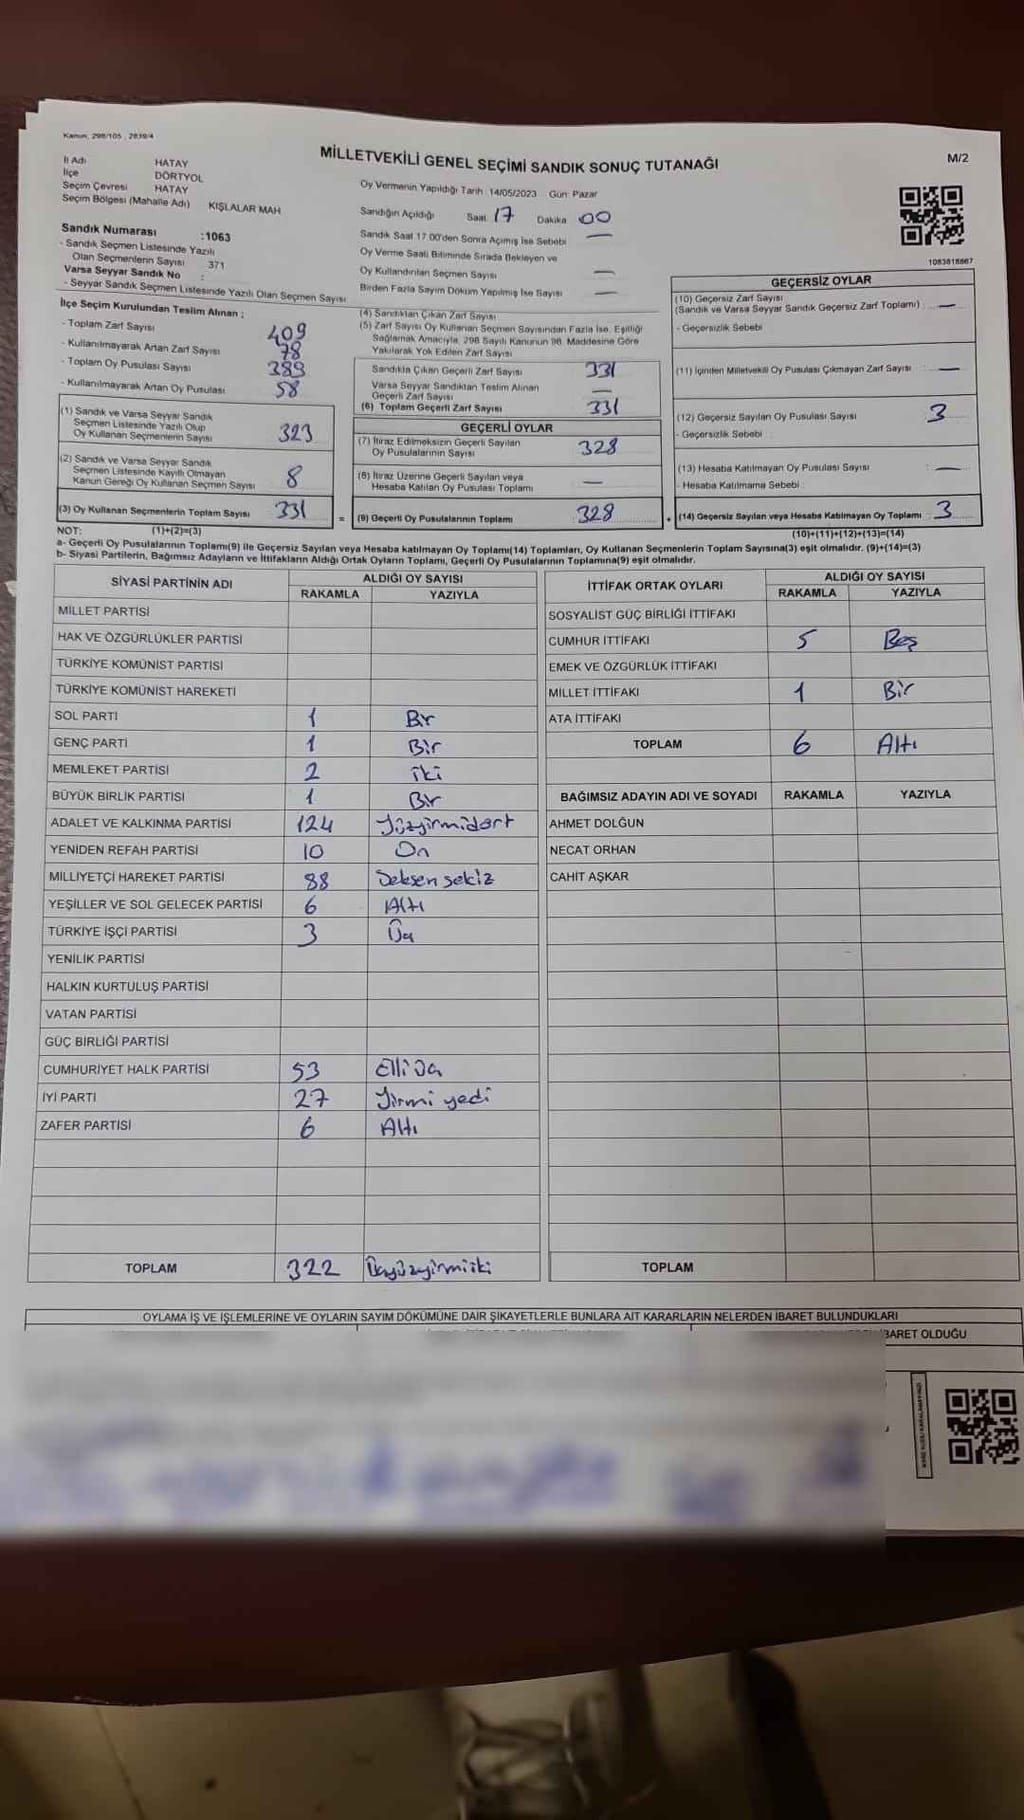 Kanun: 298/105 , 2839/4
MİLLETVEKİLİ GENEL SEÇİMİ SANDIK SONUÇ TUTANAĞI
M/2
İl Adı HATAY
İlçe DÖRTYOL
Seçim Çevresi HATAY
Seçim Bölgesi (Mahalle Adı) KIŞLALAR MAH
Sandık Numarası :1063
- Sandık Seçmen Listesinde Yazılı
Olan Seçmenlerin Sayısı 371
Varsa Seyyar Sandık No :
- Seyyar Sandık Seçmen Listesinde Yazılı Olan Seçmen Sayısı
İlçe Seçim Kurulundan Teslim Alınan ;
- Toplam Zarf Sayısı 409
- Kullanılmayarak Artan Zarf Sayısı 78
- Toplam Oy Pusulası Sayısı 389
- Kullanılmayarak Artan Oy Pusulası 58
(1) Sandık ve Varsa Seyyar Sandık
Seçmen Listesinde Yazılı Olup
Oy Kullanan Seçmenlerin Sayısı 323
(2) Sandık ve Varsa Seyyar Sandık
Seçmen Listesinde Kayıtlı Olmayan
Kanun Gereği Oy Kullanan Seçmen Sayısı 8
(3) Oy Kullanan Seçmenlerin Toplam Sayısı 331
Oy Vermenin Yapıldığı Tarih : 14/05/2023 Gün: Pazar
Sandığın Açıldığı Saat 17 Dakika 00
Sandık Saat 17:00'den Sonra Açılmış İse Sebebi —
Oy Verme Saati Bitiminde Sırada Bekleyen ve
Oy Kullandırılan Seçmen Sayısı —
Birden Fazla Sayım Döküm Yapılmış İse Sayısı —
(4) Sandıktan Çıkan Zarf Sayısı
(5) Zarf Sayısı Oy Kullanan Seçmen Sayısından Fazla İse, Eşitliği
Sağlamak Amacıyla, 298 Sayılı Kanunun 98. Maddesine Göre
Yakılarak Yok Edilen Zarf Sayısı
Sandıkta Çıkan Geçerli Zarf Sayısı 331
Varsa Seyyar Sandıktan Teslim Alınan
Geçerli Zarf Sayısı —
(6) Toplam Geçerli Zarf Sayısı 331
GEÇERLİ OYLAR
(7) İtiraz Edilmeksizin Geçerli Sayılan
Oy Pusulalarının Sayısı 328
(8) İtiraz Üzerine Geçerli Sayılan veya
Hesaba Katılan Oy Pusulası Toplamı —
= (9) Geçerli Oy Pusulalarının Toplamı 328
1083618867
GEÇERSİZ OYLAR
(10) Geçersiz Zarf Sayısı
(Sandık ve Varsa Seyyar Sandık Geçersiz Zarf Toplamı) : —
- Geçersizlik Sebebi
(11) İçinden Milletvekili Oy Pusulası Çıkmayan Zarf Sayısı : —
(12) Geçersiz Sayılan Oy Pusulası Sayısı : 3
- Geçersizlik Sebebi :
(13) Hesaba Katılmayan Oy Pusulası Sayısı : —
- Hesaba Katılmama Sebebi :
+ (14) Geçersiz Sayılan veya Hesaba Katılmayan Oy Toplamı : 3
NOT: (1)+(2)=(3) (10)+(11)+(12)+(13)=(14)
a- Geçerli Oy Pusulalarının Toplamı(9) ile Geçersiz Sayılan veya Hesaba katılmayan Oy Toplamı(14) Toplamları, Oy Kullanan Seçmenlerin Toplam Sayısına(3) eşit olmalıdır. (9)+(14)=(3)
b- Siyasi Partilerin, Bağımsız Adayların ve İttifakların Aldığı Ortak Oyların Toplamı, Geçerli Oy Pusulalarının Toplamına(9) eşit olmalıdır.
SİYASİ PARTİNİN ADI ALDIĞI OY SAYISI
RAKAMLA YAZIYLA
MİLLET PARTİSİ
HAK VE ÖZGÜRLÜKLER PARTİSİ
TÜRKİYE KOMÜNİST PARTİSİ
TÜRKİYE KOMÜNİST HAREKETİ
SOL PARTİ 1 Bir
GENÇ PARTİ 1 Bir
MEMLEKET PARTİSİ 2 iki
BÜYÜK BİRLİK PARTİSİ 1 Bir
ADALET VE KALKINMA PARTİSİ 124 Yüzyirmidört
YENİDEN REFAH PARTİSİ 10 On
MİLLİYETÇİ HAREKET PARTİSİ 88 Seksen sekiz
YEŞİLLER VE SOL GELECEK PARTİSİ 6 Altı
TÜRKİYE İŞÇİ PARTİSİ 3 Üç
YENİLİK PARTİSİ
HALKIN KURTULUŞ PARTİSİ
VATAN PARTİSİ
GÜÇ BİRLİĞİ PARTİSİ
CUMHURİYET HALK PARTİSİ 53 Elli üç
İYİ PARTİ 27 Yirmi yedi
ZAFER PARTİSİ 6 Altı
TOPLAM 322 Üçyüzyirmiiki
İTTİFAK ORTAK OYLARI ALDIĞI OY SAYISI
RAKAMLA YAZIYLA
SOSYALİST GÜÇ BİRLİĞİ İTTİFAKI
CUMHUR İTTİFAKI 5 Beş
EMEK VE ÖZGÜRLÜK İTTİFAKI
MİLLET İTTİFAKI 1 Bir
ATA İTTİFAKI
TOPLAM 6 Altı
BAĞIMSIZ ADAYIN ADI VE SOYADI RAKAMLA YAZIYLA
AHMET DOLĞUN
NECAT ORHAN
CAHİT AŞKAR
TOPLAM
OYLAMA İŞ VE İŞLEMLERİNE VE OYLARIN SAYIM DÖKÜMÜNE DAİR ŞİKAYETLERLE BUNLARA AİT KARARLARIN NELERDEN İBARET BULUNDUKLARI
İBARET OLDUĞU